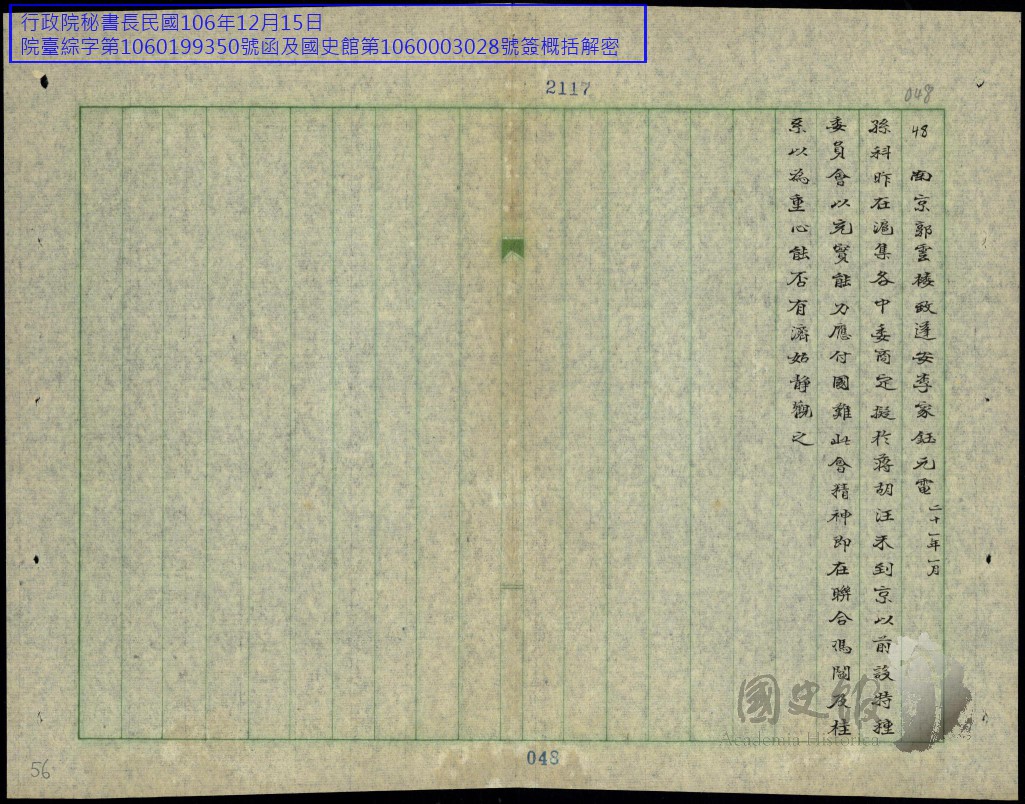 行政院秘書長民國106年12月15日
院臺綜字第1060199350號函及國史館第1060003028號簽概括解密
2117
048
48 南京郭雲樓致遂安李家鈺元電 二十一年一月
孫科昨在滬集各中委商定擬於蔣胡汪未到京以前設特種
委員會以充實能力應付國難此會精神即在聯合馮閻及桂
系以為重心能否有濟姑靜觀之
國史館
Academia Historica
048
56